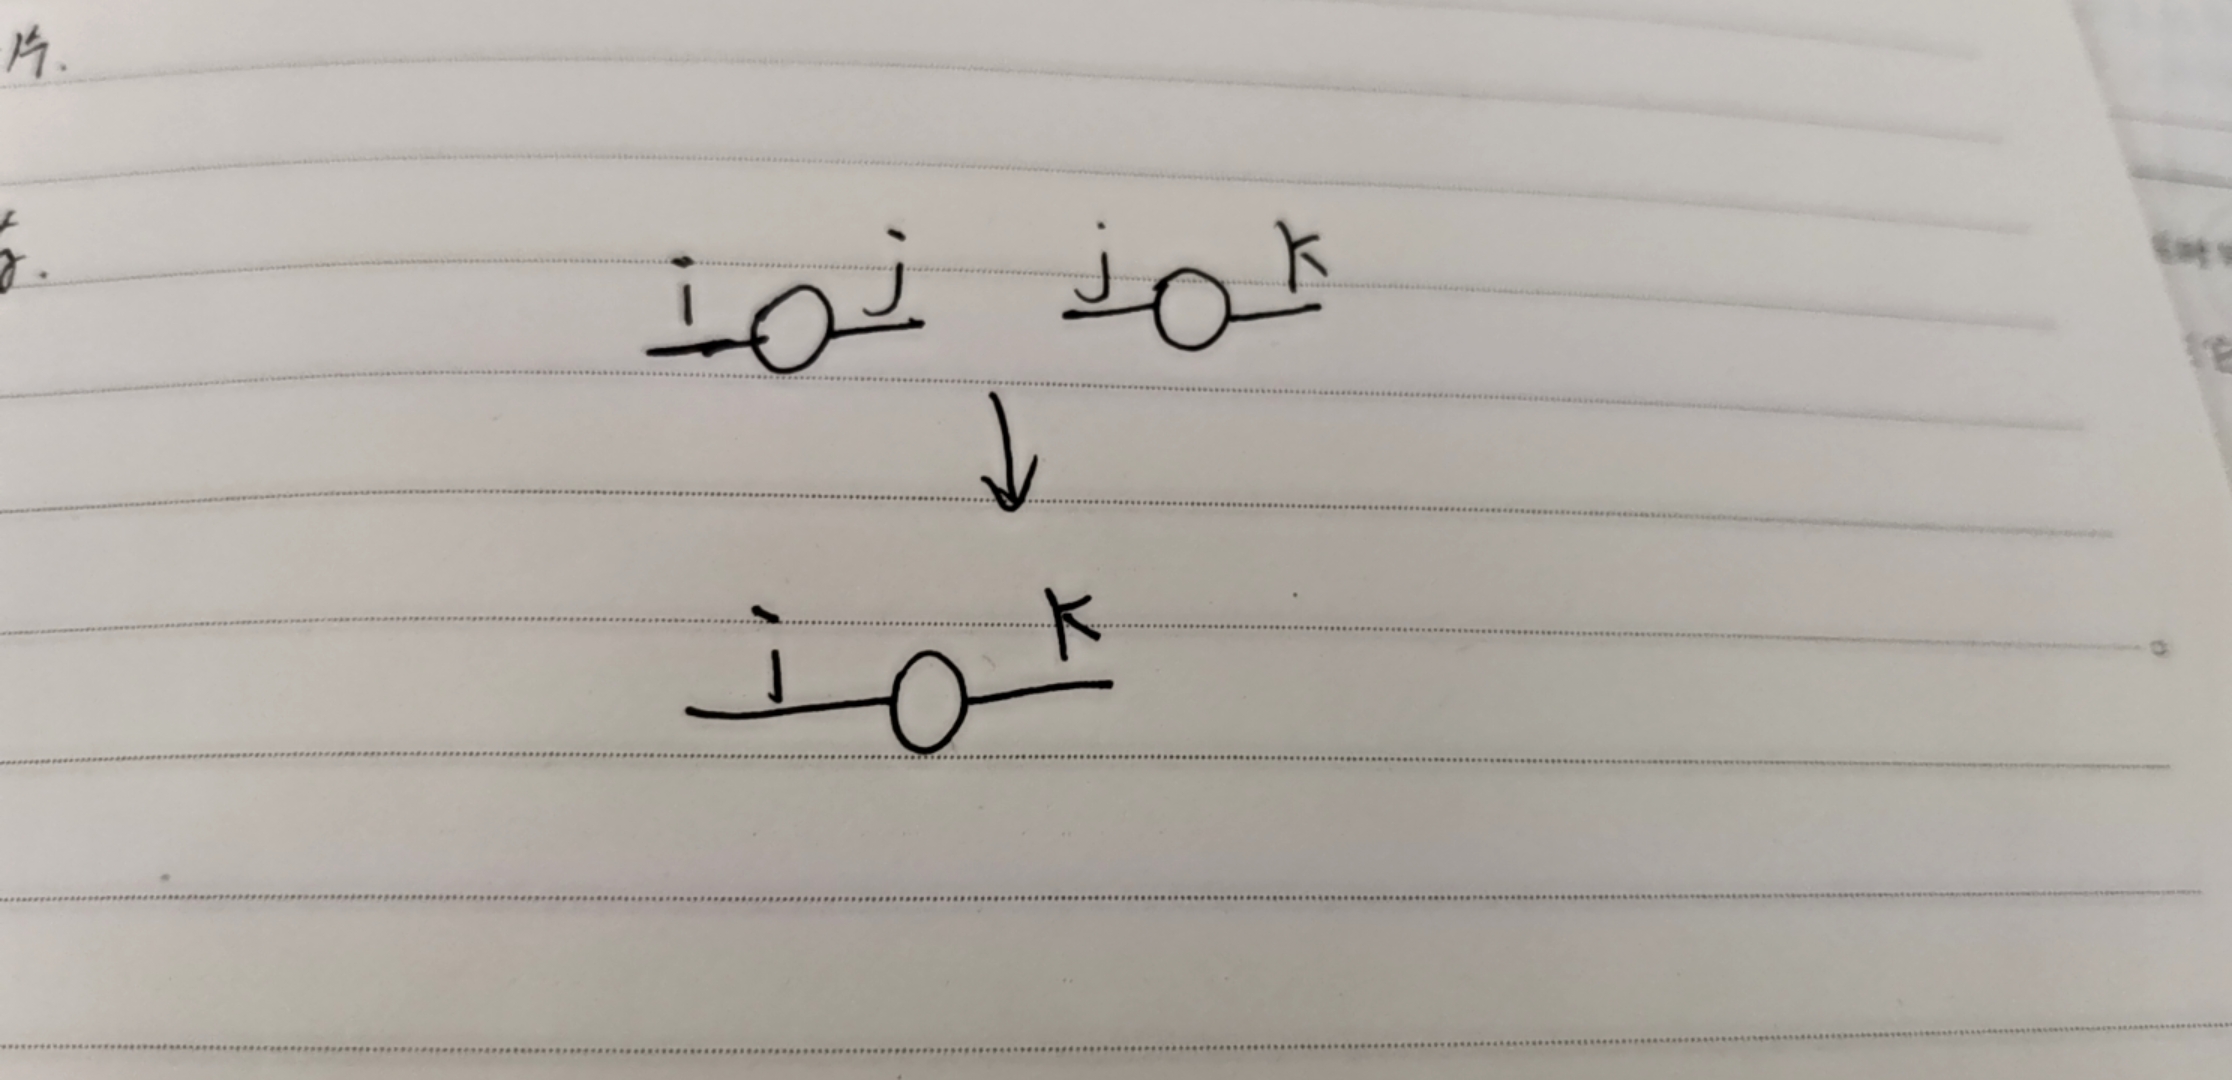 片.
i j j k
i k